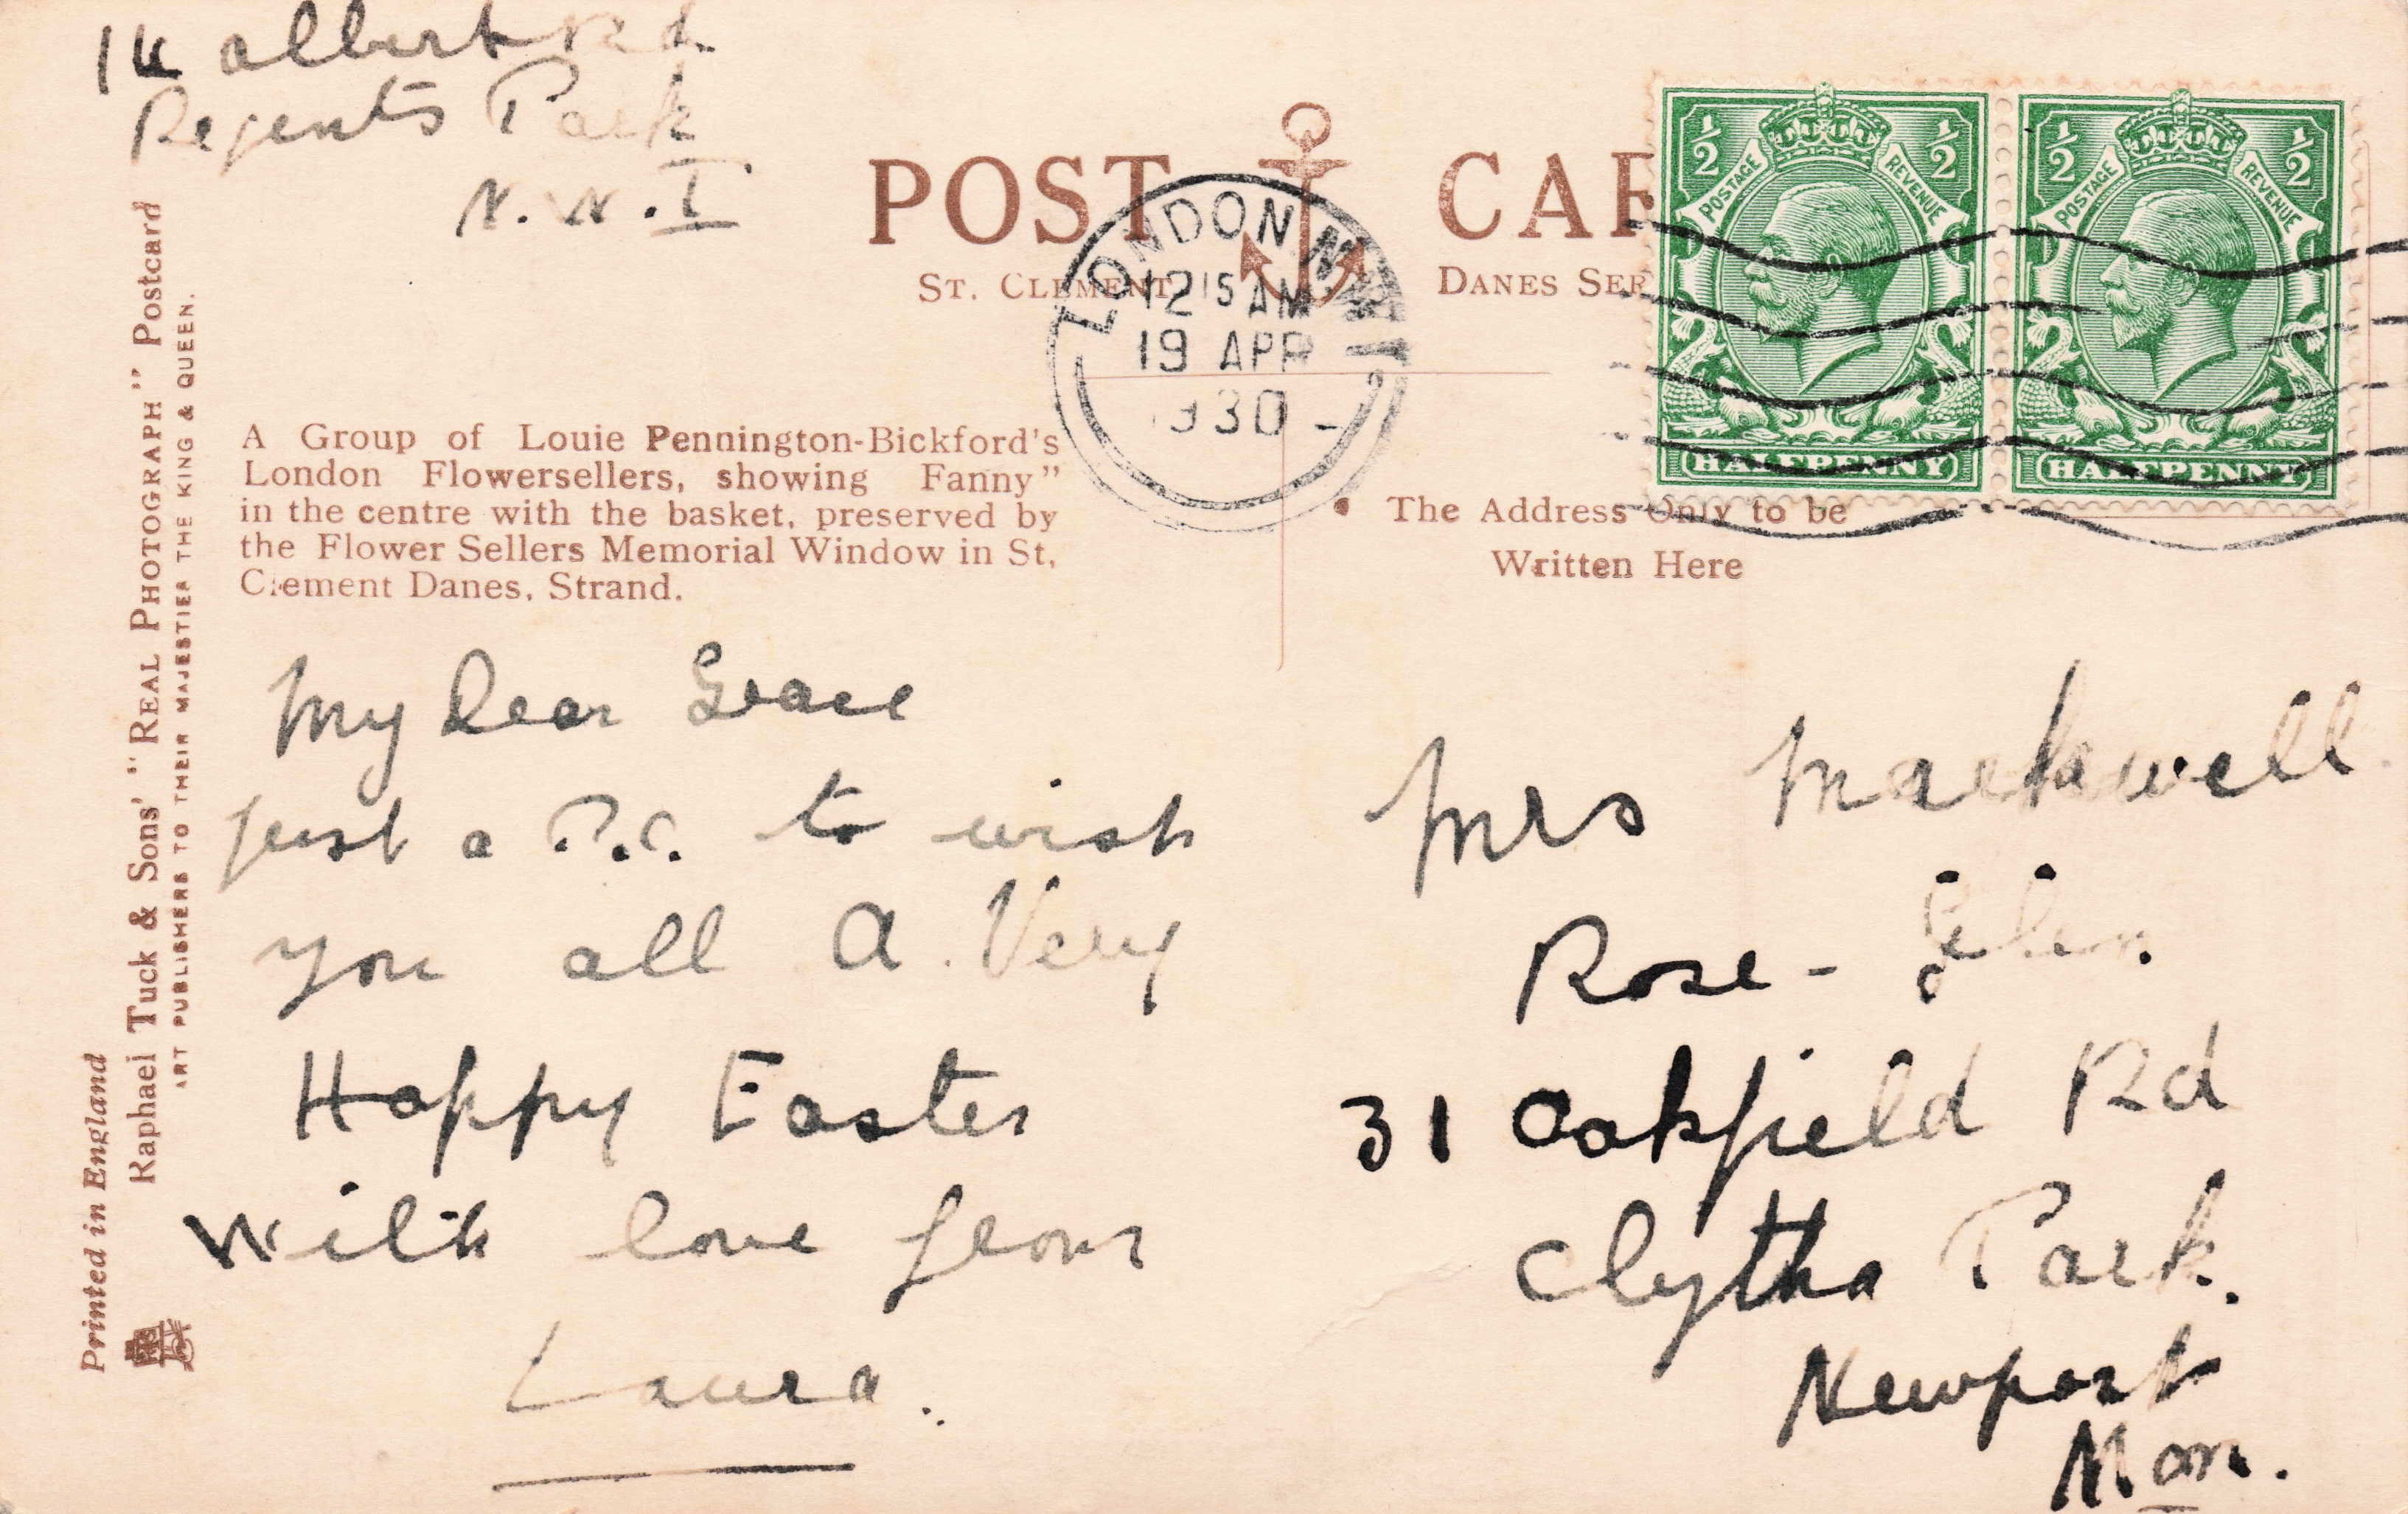 14 albert rd.
Regents Park
N. W. I
POST CAR
ST. CLEMENT DANES SER
LONDON N.W.1
12 15 AM
19 APR
1930
POSTAGE REVENUE
½ ½
HALFPENNY
POSTAGE REVENUE
½ ½
HALFPENNY
A Group of Louie Pennington-Bickford's
London Flowersellers, showing Fanny"
in the centre with the basket, preserved by
the Flower Sellers Memorial Window in St.
Clement Danes, Strand.
The Address Only to be
Written Here
My Dear Grace
just a P.C. to wish
you all a Very
Happy Easter
With love from
Laura.
Mrs Markwell.
Rose - Glen.
31 Oakfield Rd
Clytha Park.
Newport
Mon.
Printed in England
Raphael Tuck & Sons' "REAL PHOTOGRAPH" Postcard
ART PUBLISHERS TO THEIR MAJESTIES THE KING & QUEEN.